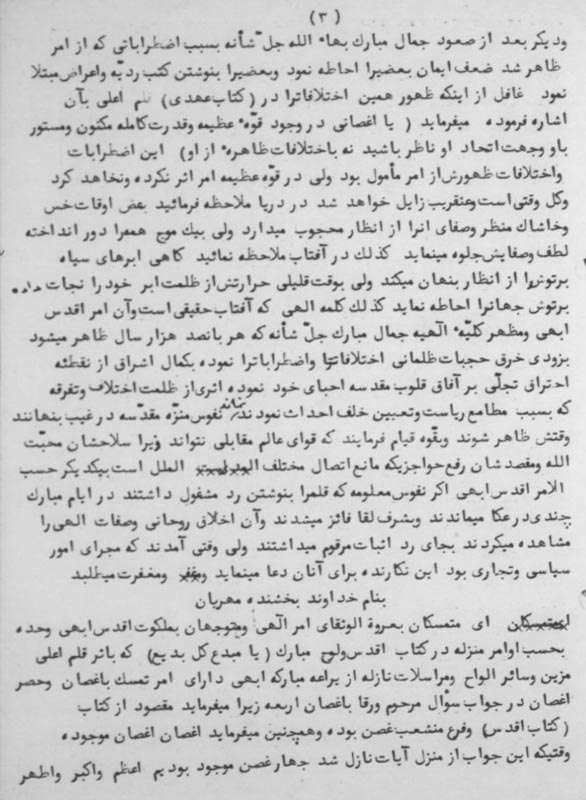 (٣)
ودیکر بعد از صعود جمال مبارك بهاء الله جلّ شأنه بسبب اضطراباتی که از امر
ظاهر شد ضعف ایمان بعضیرا احاطه نمود وبعضیرا بنوشتن کتب ردیّه واعراض مبتلا
نمود غافل از اینکه ظهور همین اختلافاترا در (کتاب عهدی) قلم اعلی بآن
اشاره فرموده میفرماید (یا اغصانی در وجود قوّهٴ عظیمه وقدرت کامله مکنون ومستور
باو وجهت اتحاد او ناظر باشید نه باختلافات ظاهرهٴ از او) این اضطرابات
واختلافات ظهورش از امر مأمول بود ولی در قوّه عظیمه امر اثر نکرده ونخاهد کرد
وکل وقتی است وعنقریب زایل خواهد شد در دریا ملاحظه فرمائید بعض اوقات خس
وخاشاك منظر وصفای انرا از انظار محجوب میدارد ولی بیك موج همه‌را دور انداخته
لطف وصفایش جلوه مینماید کذلك در آفتاب ملاحظه نمائید کاهی ابرهای سیاه
پرتوش را از انظار پنهان میکند ولی بوقت قلیلی حرارتش از ظلمت ابر خود را نجات داده
پرتوش جهانرا احاطه نماید کذلك کلمه الهی که آفتاب حقیقی است وآن امر اقدس
ابهی ومظهر کلیّهٴ الهیه جمال مبارك جلّ شأنه که هر پانصد هزار سال ظاهر میشود
بزودی خرق حجبات ظلمانی اختلافات واضطراباترا نموده بکمال اشراق از نقطئه
احتراق تجلّی بر آفاق قلوب مقدسه احبای خود نموده اثری از ظلمت اختلاف وتفرقه
که بسبب مطامع ریاست وتعیین خلف احداث نمودند نماند نفوس منزّه مقدّسه در غیب پنهانند
وقتش ظاهر شوند وبقوّه قیام فرمایند که قوای عالم مقابلی نتواند زیرا سلاحشان محبّت
الله ومقصدشان رفع حواجزیکه مانع اتصال مختلف الملل است بیکدیکر حسب
الامر اقدس ابهی اکر نفوس معلومه که قلمرا بنوشتن رد مشغول داشتند در ایام مبارك
چندی در عکا میماندند وبشرف لقا فائز میشدند وآن اخلاق روحانی وصفات الهی را
مشاهده میکردند بجای رد اثبات مرقوم میداشتند ولی وقتی آمدند که مجرای امور
سیاسی وتجاری بود این نکارنده برای آنان دعا مینماید ومغفرت میطلبد
بنام خداوند بخشنده مهربان
ای متمسکان بعروة الوثقای امر الهی ومتوجهان بملکوت اقدس ابهی وحده
بحسب اوامر منزله در کتاب اقدس ولوح مبارك (یا مبدع کل بدیع) که باثر قلم اعلی
مزین وسائر الواح ومراسلات نازله از یراعه مبارکه ابهی دارای امر تمسك باغصان وحصر
اغصان در جواب سؤال مرحوم ورقا باغصان اربعه زیرا میفرماید مقصود از کتاب
(کتاب اقدس) وفرع منشعب غصن بوده وهمچنین میفرماید اغصان اغصان موجوده
وقتیکه این جواب از منزل آیات نازل شد چهار غصن موجود بودیم اعظم واکبر واطهر